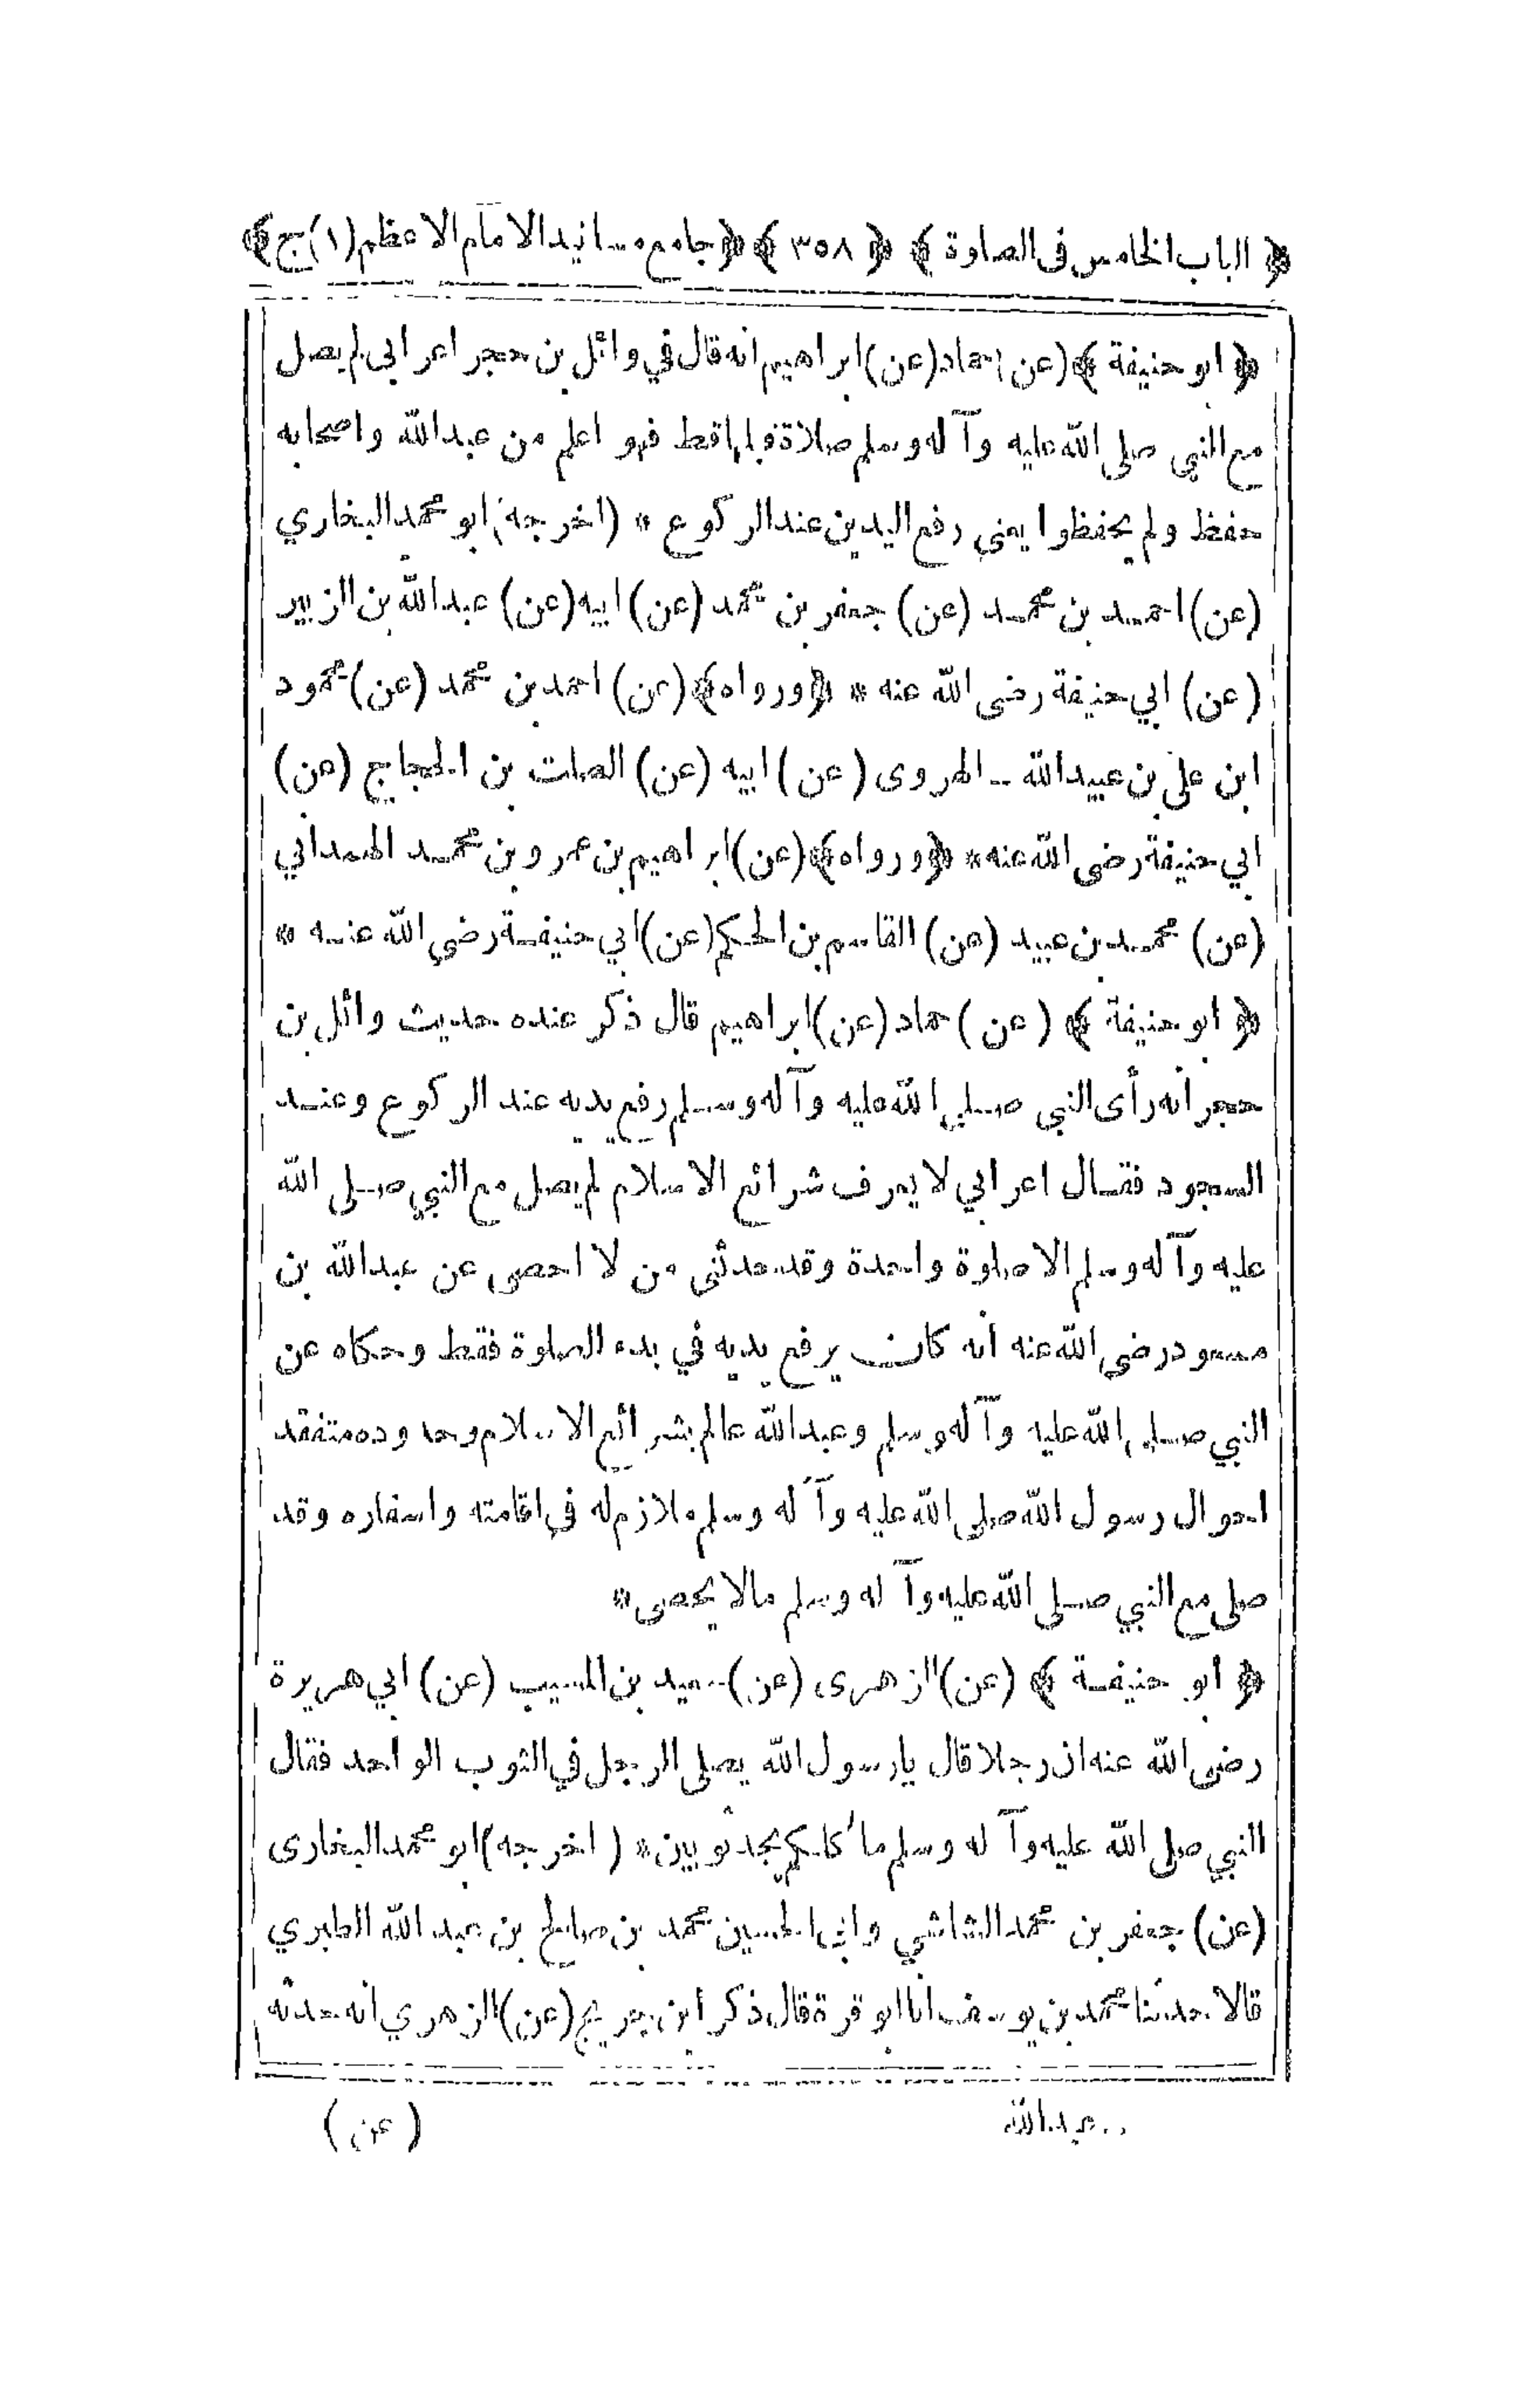 ﴿ الباب الخامس فى الصلوة ﴾ ﴿ ٣٥٨ ﴾ ﴿ جامع مسانيد الامام الاعظم (١) ج ﴾
﴿ ابو حنيفة ﴾ (عن) حماد (عن) ابراهيم انه قال في وائل بن حجر اعرابى لم يصل
مع النبي صلى الله عليه وآله وسلم صلاة قبلها قط فهو اعلم من عبدالله واصحابه
حفظ ولم يحفظوا يعنى رفع اليدين عند الركوع * (اخرجه) ابو محمد البخاري
(عن) احمد بن محمد (عن) جعفر بن محمد (عن) ابيه (عن) عبدالله بن الزبير
(عن) ابي حنيفة رضى الله عنه * ﴿ ورواه ﴾ (عن) احمد بن محمد (عن) محمود
ابن علي بن عبيدالله الهروى (عن) ابيه (عن) الصلت بن الحجاج (عن)
ابي حنيفة رضى الله عنه * ﴿ ورواه ﴾ (عن) ابراهيم بن عمرو بن محمد الهمداني
(عن) محمد بن عبيد (عن) القاسم بن الحكم (عن) ابي حنيفة رضى الله عنه *
﴿ ابو حنيفة ﴾ (عن) حماد (عن) ابراهيم قال ذكر عنده حديث وائل بن
حجر أنه رأى النبي صلى الله عليه وآله وسلم رفع يديه عند الركوع وعند
السجود فقال اعرابي لا يعرف شرائع الاسلام لم يصل مع النبي صلى الله
عليه وآله وسلم الا صلوة واحدة وقد حدثنى من لا احصى عن عبدالله بن
مسعود رضى الله عنه أنه كان يرفع يديه في بدء الصلوة فقط وحكاه عن
النبي صلى الله عليه وآله وسلم وعبدالله عالم بشرائع الاسلام وحدوده متفقد
احوال رسول الله صلى الله عليه وآله وسلم ملازم له في اقامته واسفاره وقد
صلى مع النبي صلى الله عليه وآله وسلم مالا يحصى *
﴿ ابو حنيفة ﴾ (عن) الزهرى (عن) سعيد بن المسيب (عن) ابي هريرة
رضى الله عنه ان رجلا قال يا رسول الله يصلى الرجل في الثوب الواحد فقال
النبي صلى الله عليه وآله وسلم ما كلكم يجد ثوبين * (اخرجه) ابو محمد البخارى
(عن) جعفر بن محمد الشاشي وابى الحسين محمد بن صالح بن عبد الله الطبري
قالا حدثنا محمد بن يوسف انا ابو قرة قال ذكر ابن جريج (عن) الزهري أنه حدثه
عبدالله (عن)